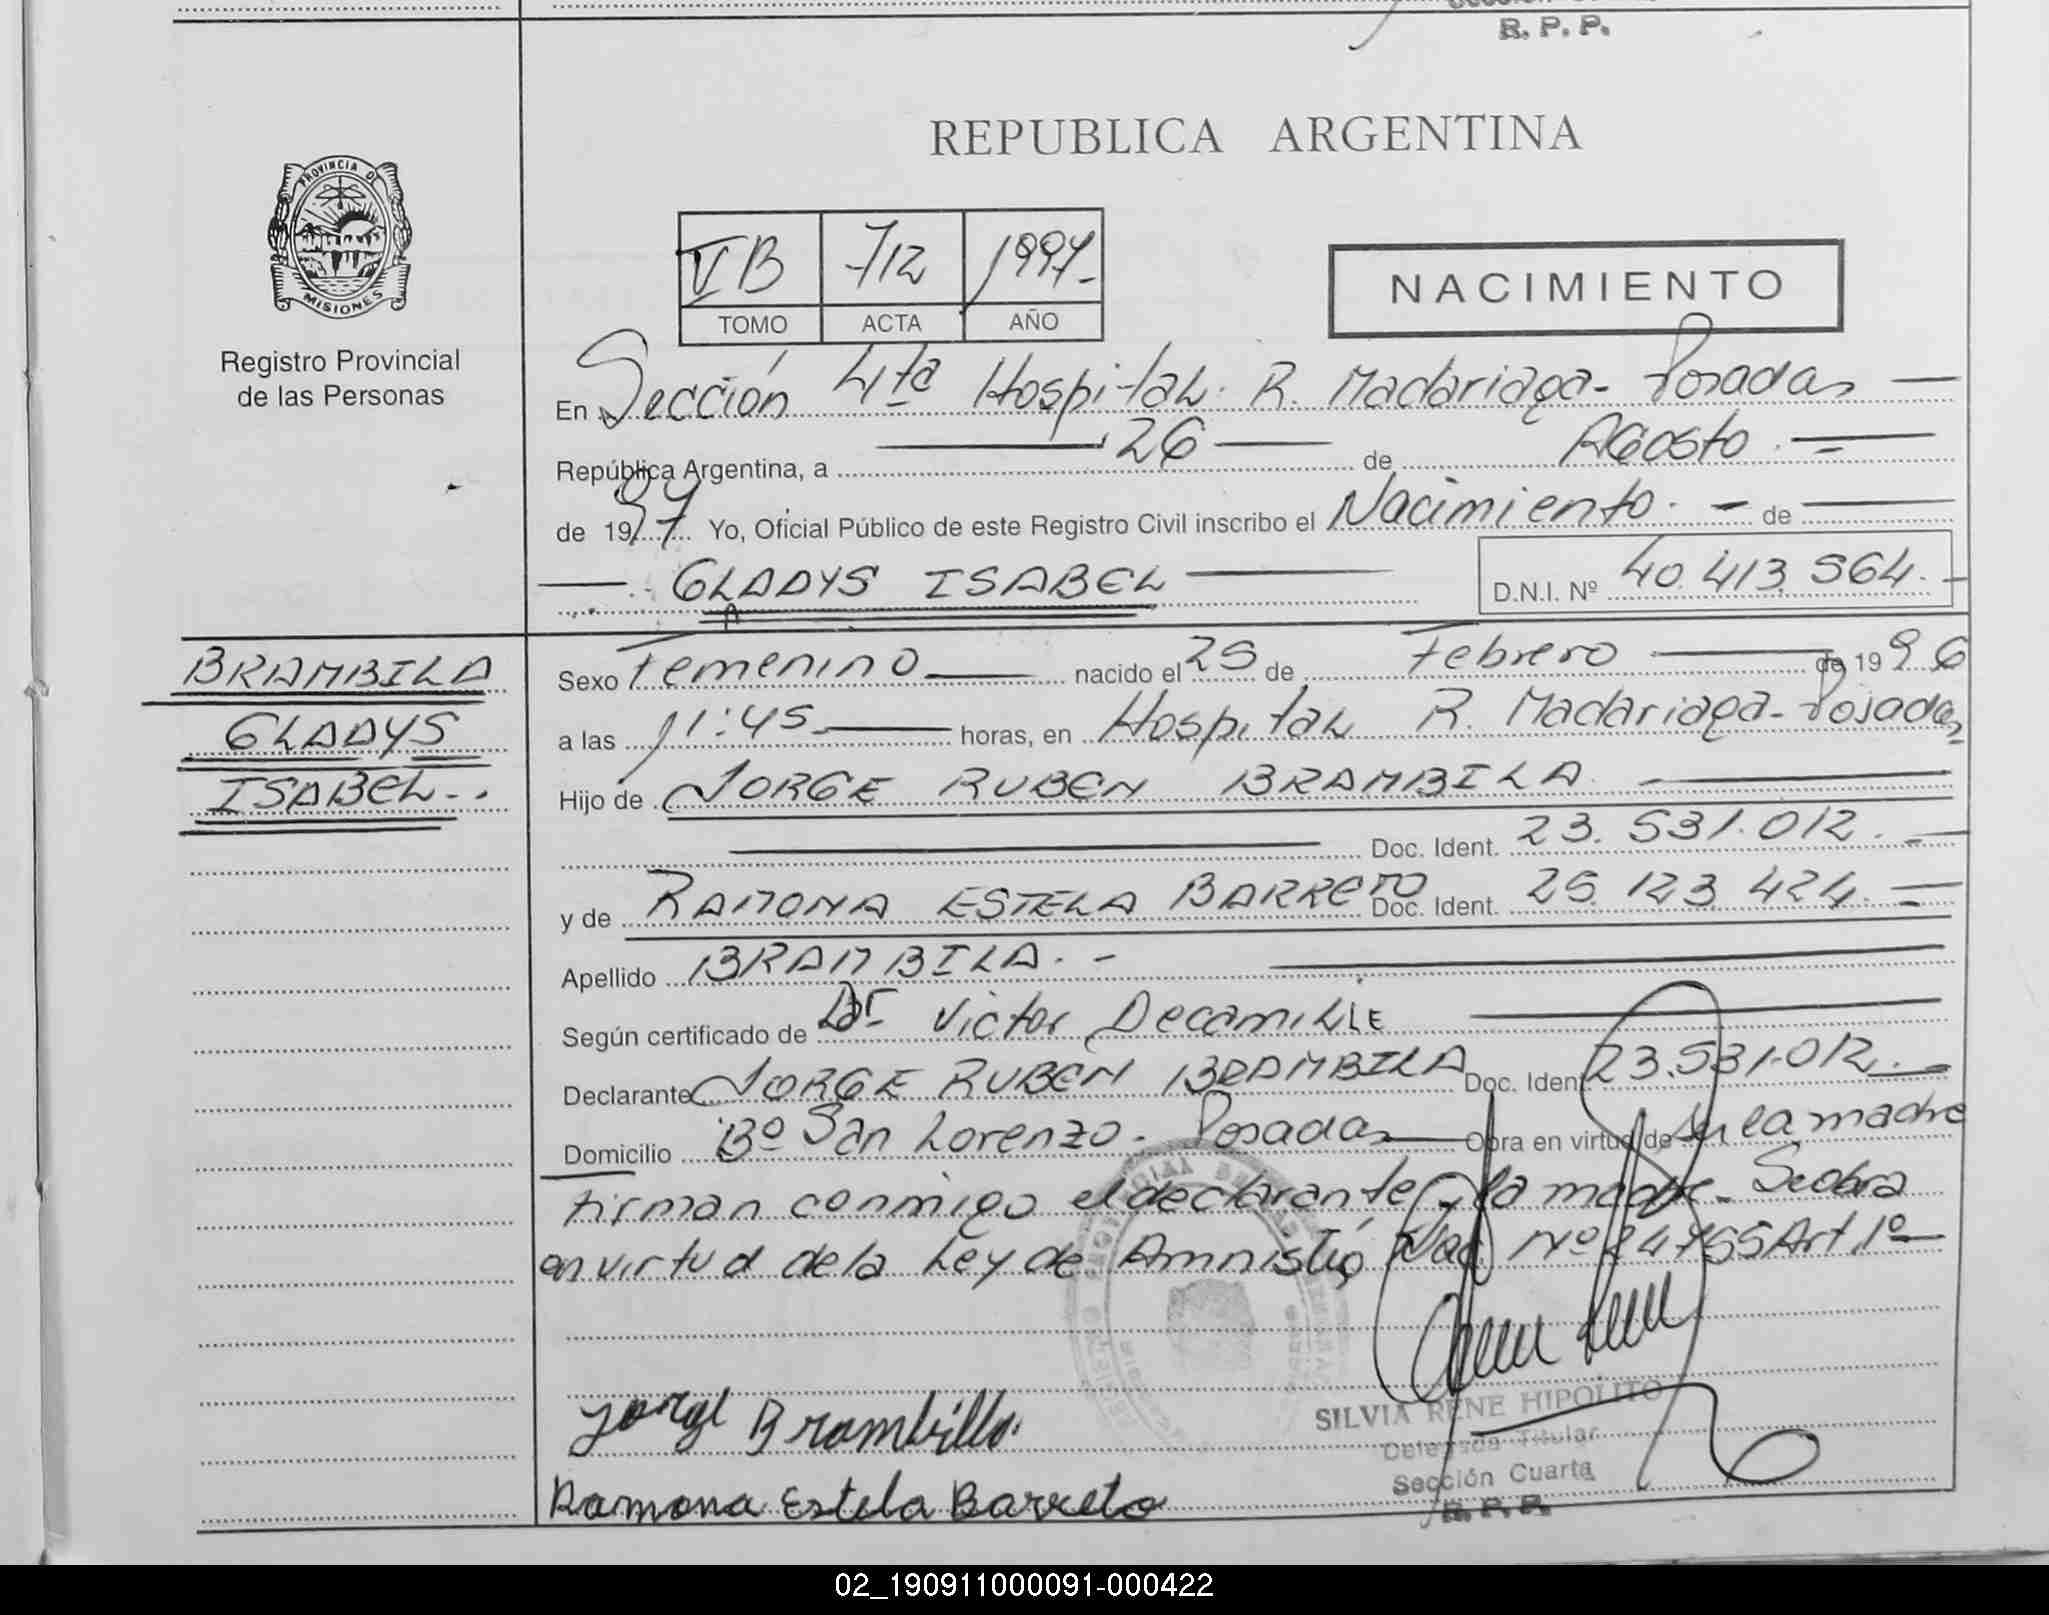 R. P. P.
REPUBLICA ARGENTINA
PROVINCIA DE
MISIONES
Registro Provincial
de las Personas
VB 712 1997-
TOMO ACTA AÑO
NACIMIENTO
En Sección 4ta Hospital R. Madariaga - Posadas
República Argentina, a 26 de Agosto.
de 1997 Yo, Oficial Público de este Registro Civil inscribo el Nacimiento. - de
GLADYS ISABEL D.N.I. Nº 40.413.564.-
BRAMBILA
GLADYS
ISABEL-.
Sexo Femenino nacido el 25 de Febrero de 1996
a las 11:45 horas, en Hospital R. Madariaga - Posadas
Hijo de JORGE RUBEN BRAMBILA.
Doc. Ident. 23.531.012.-
y de RAMONA ESTELA BARRETO Doc. Ident. 25.123.424.-
Apellido BRAMBILA.-
Según certificado de Dr. Victor Decamilie
Declarante JORGE RUBEN BRAMBILA Doc. Ident. 23.531.012.-
Domicilio Bº San Lorenzo - Posadas Obra en virtud de la madre
firman conmigo el declarante y la madre - Se obra
en virtud de la Ley de Amnistía Nac. Nº 24755 Art 1º-
Jorge Brambilla.
SILVIA RENE HIPOLITO
Delegada Titular
Sección Cuarta
R. P. P.
Ramona Estela Barreto
02_190911000091-000422